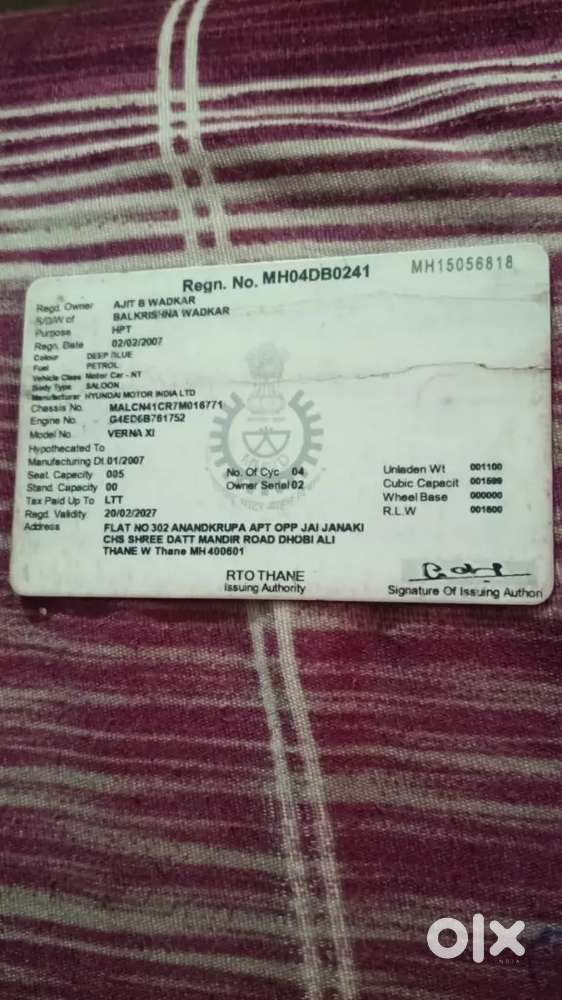 Regn. No. MH04DB0241 MH15056818
Regd. Owner AJIT B WADKAR
S/D/W of BALKRISHNA WADKAR
Purpose HPT
Regn. Date 02/02/2007
Colour DEEP BLUE
Fuel PETROL
Vehicle Class Motor Car - NT
Body Type SALOON
Manufacturer HYUNDAI MOTOR INDIA LTD
Chassis No. MALCN41CR7M016771
Engine No. G4ED6B761752
Model No. VERNA XI
Hypothecated To
Manufacturing Dt 01/2007
Seat. Capacity 005 No. Of Cyc 04 Unladen Wt 001100
Stand. Capacity 00 Owner Serial 02 Cubic Capacit 001599
Tax Paid Up To LTT Wheel Base 000000
Regd. Validity 20/02/2027 R.L.W 001600
Address FLAT NO 302 ANANDKRUPA APT OPP JAI JANAKI
CHS SHREE DATT MANDIR ROAD DHOBI ALI
THANE W Thane MH 400601
RTO THANE
Issuing Authority Signature Of Issuing Authori
olx
INDIA